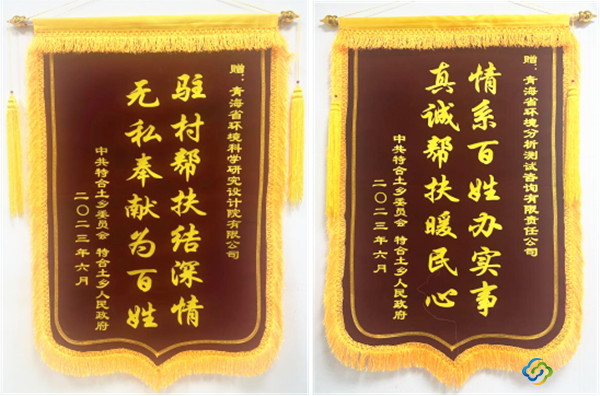 赠：青海省环境科学研究设计院有限公司
驻村帮扶结深情
无私奉献为百姓
中共特合土乡委员会 特合土乡人民政府
二〇二三年六月
赠：青海省环境分析测试咨询有限责任公司
情系百姓办实事
真诚帮扶暖民心
中共特合土乡委员会 特合土乡人民政府
二〇二三年六月